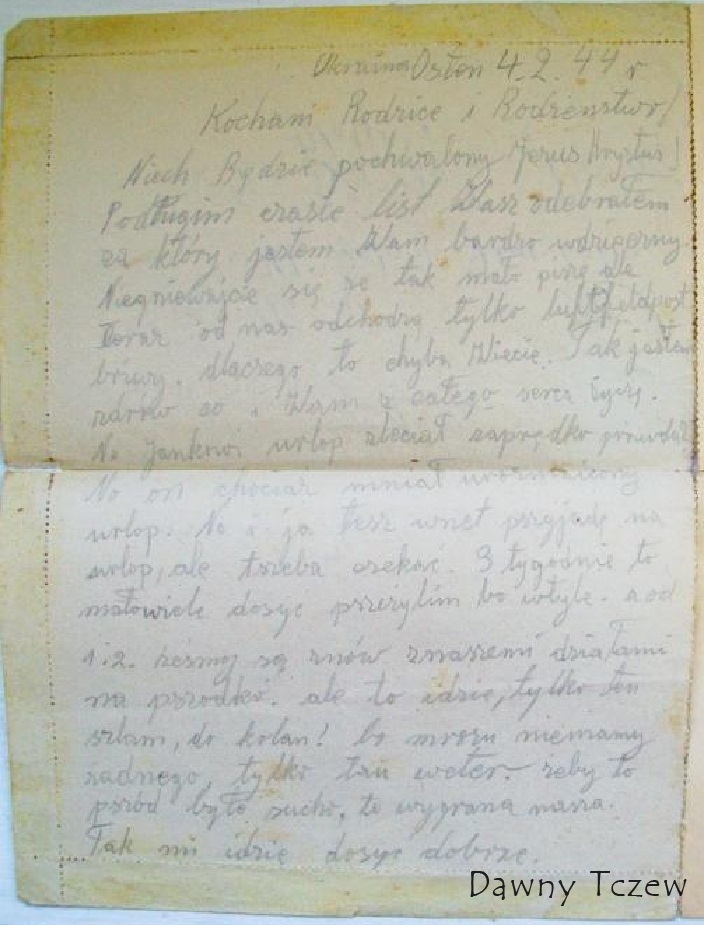 Ukraina Osten 4.2.44 r
Kochani Rodzice i Rodzenstwo!
Niech Będzie pochwalony Jezus Hrystus!
Podługim czasie list Wasz odebrałem
za który jestem Wam bardzo wdzięczny.
Niegniewajcie się że tak mało piszę ale
Teraz od nas odchodzą tylko luftfeldpost
briwy. dlaczego to chyba Wiecie. Tak jestem
zdrów co i Wam z całego serca życzę.
No Jankowi urlop zleciał zaprędko prawda?
No on chociaż mniał urozmaicony
urlop. No i ja tesz wnet przyjadę na
urlop, ale trzeba czekać. 3 tygodnie to
małowiele dosyć przeżylim bo wtyle. a od
1.2. żeśmy są znów znaszemi działami
na przodku. ale to idzie, tylko ten
szlam, do kolan! bo mrozu niemamy
żadnego, tylko tau weter. żeby to
przód było sucho, to wygrana nasza.
Tak mi idzie dosyć dobrze.
Dawny Tczew